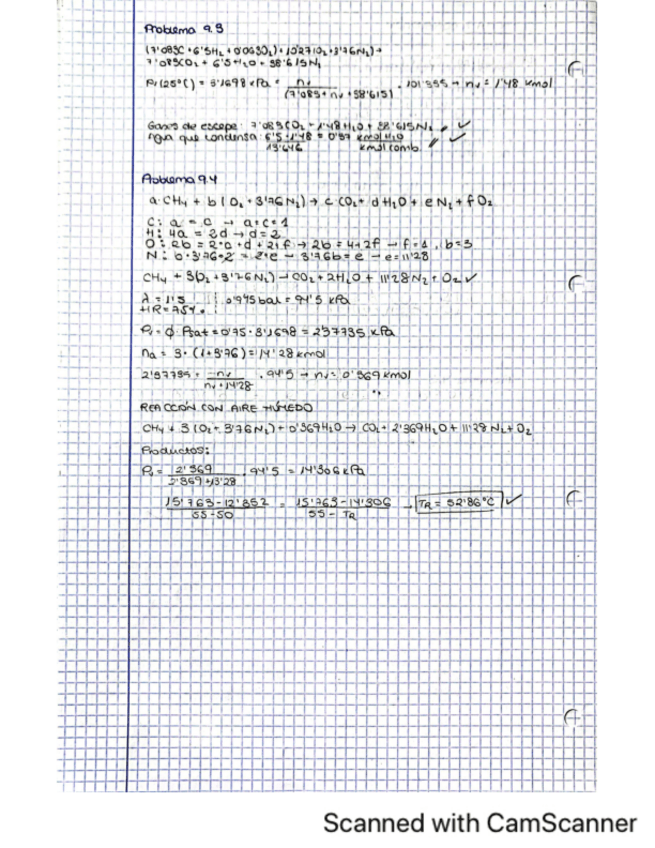 Problema 9.3
(7'085C + 6'5H₂ + 0'063O₂) + 10'27(O₂ + 3'76N₂) →
7'085CO₂ + 6'5H₂O + 38'615N₂
Pv(25°C) = 3'1698 kPa = nv / (7'085 + nv + 38'615) · 101'355 → nv = 1'48 kmol
Gases de escape: 7'085CO₂ + 1'48H₂O + 38'615N₂ ✓
Agua que condensa: 6'5 - 1'48 / 13'646 = 0'37 kmol H₂O / kmol comb. ✓
Problema 9.4
a CH₄ + b(O₂ + 3'76N₂) → c CO₂ + d H₂O + e N₂ + f O₂
C: a = c → a = c = 1
H: 4a = 2d → d = 2
O: 2b = 2·a + d + 2f → 2b = 4 + 2f → f = 1, b = 3
N: b·3'76·2 = 2·e → 3'76b = e → e = 11'28
CH₄ + 3(O₂ + 3'76N₂) → CO₂ + 2H₂O + 11'28N₂ + O₂ ✓
λ = 1'5 0'945 bar = 94'5 kPa
HR = 75%
Pv = φ · Psat = 0'75 · 3'1698 = 2'37735 kPa
na = 3 · (1 + 3'76) = 14'28 kmol
2'37735 = nv / (nv + 14'28) · 94'5 → nv = 0'369 kmol
REACCIÓN CON AIRE HÚMEDO
CH₄ + 3(O₂ + 3'76N₂) + 0'369H₂O → CO₂ + 2'369H₂O + 11'28N₂ + O₂
Productos:
Pv = 2'369 / (2'369 + 13'28) · 94'5 = 14'306 kPa
15'763 - 12'352 / 55 - 50 = 15'763 - 14'306 / 55 - TR → TR = 52'86°C ✓
Scanned with CamScanner